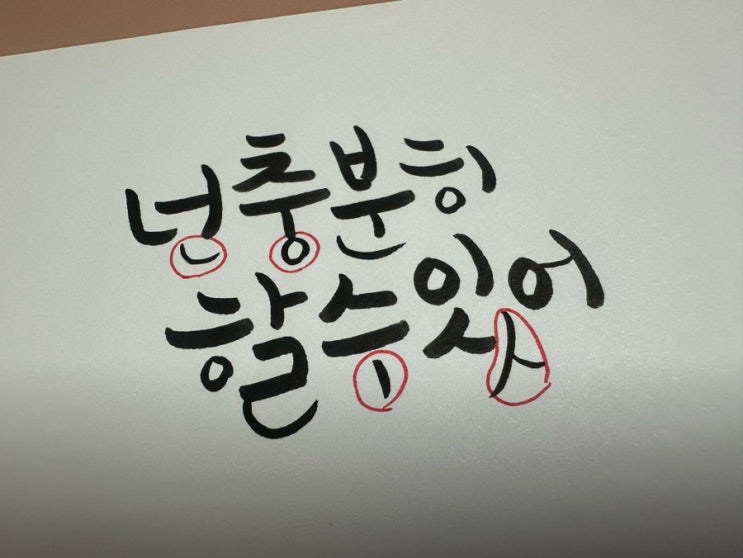 넌 충분히
할 수 있어